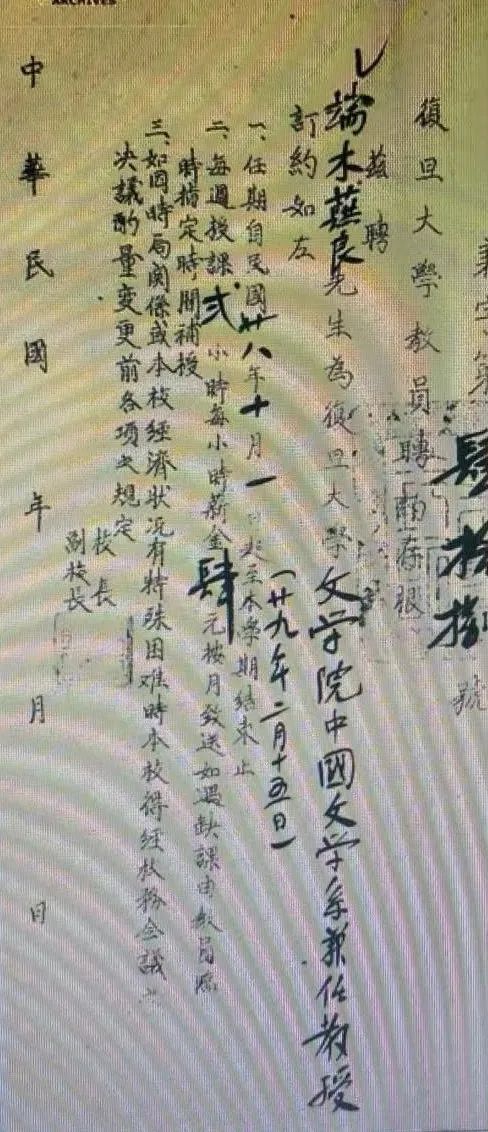 ARCHIVES
字第肆拾捌號
復旦大學教員聘約存根
茲聘
端木蕻良先生為復旦大學文学院中國文学系兼任教授
訂約如左
一、任期自民國廿八年十月一日起至本學期結束止
(廿九年二月十五日)
二、每週授課弍小時每小時薪金肆元按月發送如遇缺課由教員隨
時指定時間補授
三、如因時局關係或本校經濟狀况有特殊困难時本校得經校務会議
决議酌量变更前各項之規定
校長
副校長
中華民國年月日